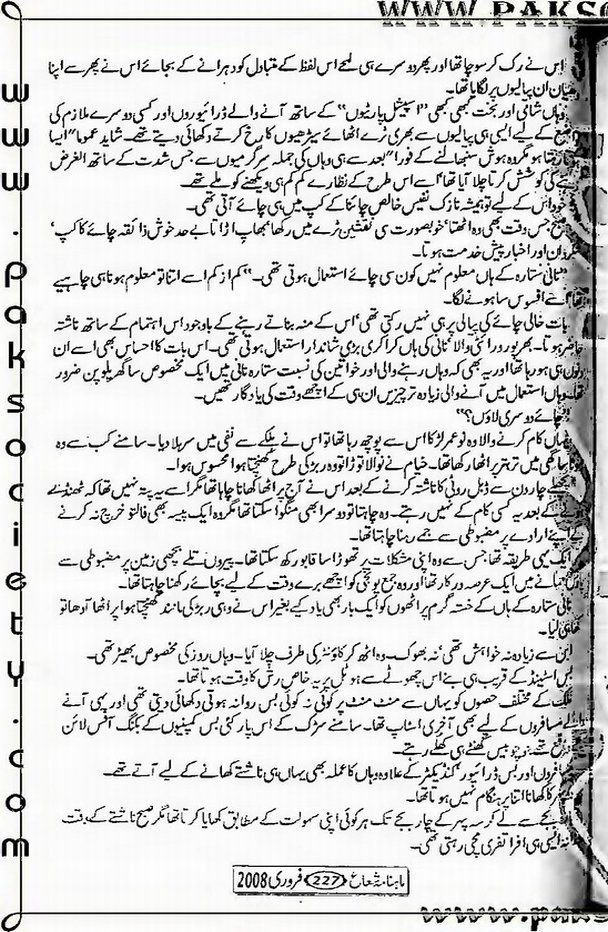 WWW.PAKSO
www.paksociety.com
اس نے رک کر سوچا تھا اور پھر دوسرے ہی لمحے اس لفظ کے متبادل کو دہرانے کے بجائے اس نے پھر سے اپنا
دھیان ان پیالیوں پر لگایا تھا۔
وہاں شامی اور بخت کبھی کبھی ”اسپیشل پارٹیوں“ کے ساتھ آنے والے ڈرائیوروں اور کسی دوسرے ملازم کی
تواضع کے لیے ایسی ہی پیالیوں سے بھری ٹرے اٹھائے سیڑھیوں کا رخ کرتے دکھائی دیتے تھے۔ شاید عموماً ”ایسا
ہوتا رہتا ہو مگر وہ ہوش سنبھالنے کے فوراً“ بعد سے ہی وہاں کی جملہ سرگرمیوں سے جس شدت کے ساتھ الغرض
کی کوشش کرتا چلا آیا تھا اسے اس طرح کے نظارے کم کم ہی دیکھنے کو ملے تھے۔
خود اس کے لیے تو ہمیشہ نازک نفیس خالص چائنا کے کپ میں ہی چائے آتی تھی۔
صبح جس وقت بھی وہ اٹھتا‘ خوبصورت سی نقشین ٹرے میں رکھا‘ بھاپ اڑاتا بے حد خوش ذائقہ چائے کا کپ‘
اور اخبار پیش خدمت ہوتا۔
”نانی ستارہ کے ہاں معلوم نہیں کون سی چائے استعمال ہوتی تھی۔“ کم از کم اسے اتنا تو معلوم ہونا ہی چاہیے
تھا اسے افسوس سا ہونے لگا۔
بات خالی چائے کی پیالی پر ہی نہیں رکتی تھی‘ اس کے منہ بناتے رہنے کے باوجود اس اہتمام کے ساتھ ناشتہ
حاضر ہوتا۔ بھرپور ورائٹی والا‘ نانی کی ہاں کراکری بڑی شاندار استعمال ہوتی تھی۔ اس بات کا احساس بھی اسے ان
دنوں ہی ہو رہا تھا اور یہ بھی کہ وہاں رہنے والی اور خواتین کی نسبت ستارہ نانی میں ایک مخصوص سا گھریلو پن ضرور
تھا۔ وہاں استعمال میں آنے والی زیادہ تر چیزیں ان ہی کے اچھے وقت کی یادگار تھیں۔
”چائے دوسری لاؤں؟“
یہاں کام کرنے والا وہ نوعمر لڑکا اس سے پوچھ رہا تھا تو اس نے ہلکے سے نفی میں سر ہلا دیا۔ سامنے کب سے وہ
میں تربتر پراٹھا رکھا تھا۔ خیام نے نوالا توڑا تو وہ ربڑ کی طرح کھنچتا ہوا محسوس ہوا۔
پچھلے چار دن سے ڈبل روٹی کا ناشتہ کرنے کے بعد اس نے آج پراٹھا کھانا چاہا تھا مگر اسے یہ پتہ نہیں تھا کہ ٹھنڈے
ہونے کے بعد یہ کسی کام کے نہیں رہتے۔ وہ چاہتا تو دوسرا بھی منگوا سکتا تھا مگر وہ ایک پیسہ بھی فالتو خرچ نہ کرنے
کے اپنے ارادے پر مضبوطی سے جمے رہنا چاہتا تھا۔
ایک یہی طریقہ تھا جس سے وہ اپنی مشکلات پر تھوڑا سا قابو رکھ سکتا تھا۔ پیروں تلے بچھی زمین پر مضبوطی سے
پاؤں جمانے میں ایک عرصہ درکار تھا اور وہ جمع پونجی کو اچھے برے وقت کے لیے بچائے رکھنا چاہتا تھا۔
نانی ستارہ کے ہاں کے خستہ گرم پراٹھوں کو ایک بار بھی یاد کیے بغیر اس نے وہی ربڑ کی مانند کھنچتا ہوا پراٹھا آدھا تو
کھا ہی لیا۔
اس سے زیادہ نہ خواہش تھی‘ نہ بھوک۔ وہ اٹھ کر کاؤنٹر کی طرف چلا آیا۔ وہاں روز کی مخصوص بھیڑ تھی۔
بس اسٹینڈ کے قریب ہی بنے اس چھوٹے سے ہوٹل پر یہ خاص رش کا وقت ہوتا تھا۔
ملک کے مختلف حصوں کو یہاں سے منٹ منٹ پر کوئی نہ کوئی بس روانہ ہوتی دکھائی دیتی تھی اور یہی آنے
والے مسافروں کے لیے بھی آخری اسٹاپ تھا۔ سامنے سڑک کے اس پار کئی بس کمپنیوں کے بکنگ آفس لائن
سے واقع تھے جو چوبیس گھنٹے ہی کھلے رہتے۔
مسافروں اور بس ڈرائیور‘ کنڈیکٹر کے علاوہ وہاں کا عملہ بھی یہاں ہی ناشتے کھانے کے لیے آتے تھے۔
کا کھانا اتنا پرہنگام نہیں ہوتا تھا۔
بجے سے لے کر سہ پہر کے چار بجے تک ہر کوئی اپنی سہولت کے مطابق کھایا کرتا تھا مگر صبح ناشتے کے وقت
ایسی ہی افراتفری مچی رہتی تھی۔
ماہنامہ شعاع 227 فروری 2008
www.paks